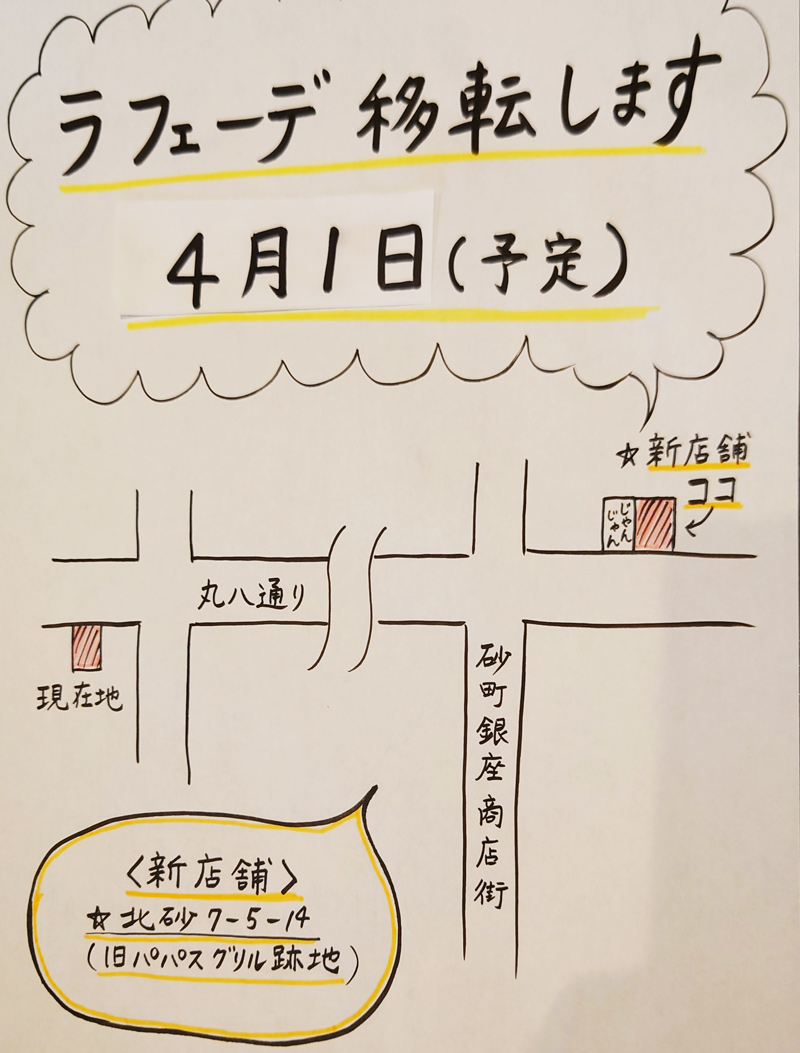 ラフェーデ 移転します
4月1日(予定)
☆新店舗
ココ
じゃんじゃん
丸八通り
現在地
砂町銀座商店街
〈新店舗〉
☆北砂7-5-14
(旧パパスグリル跡地)